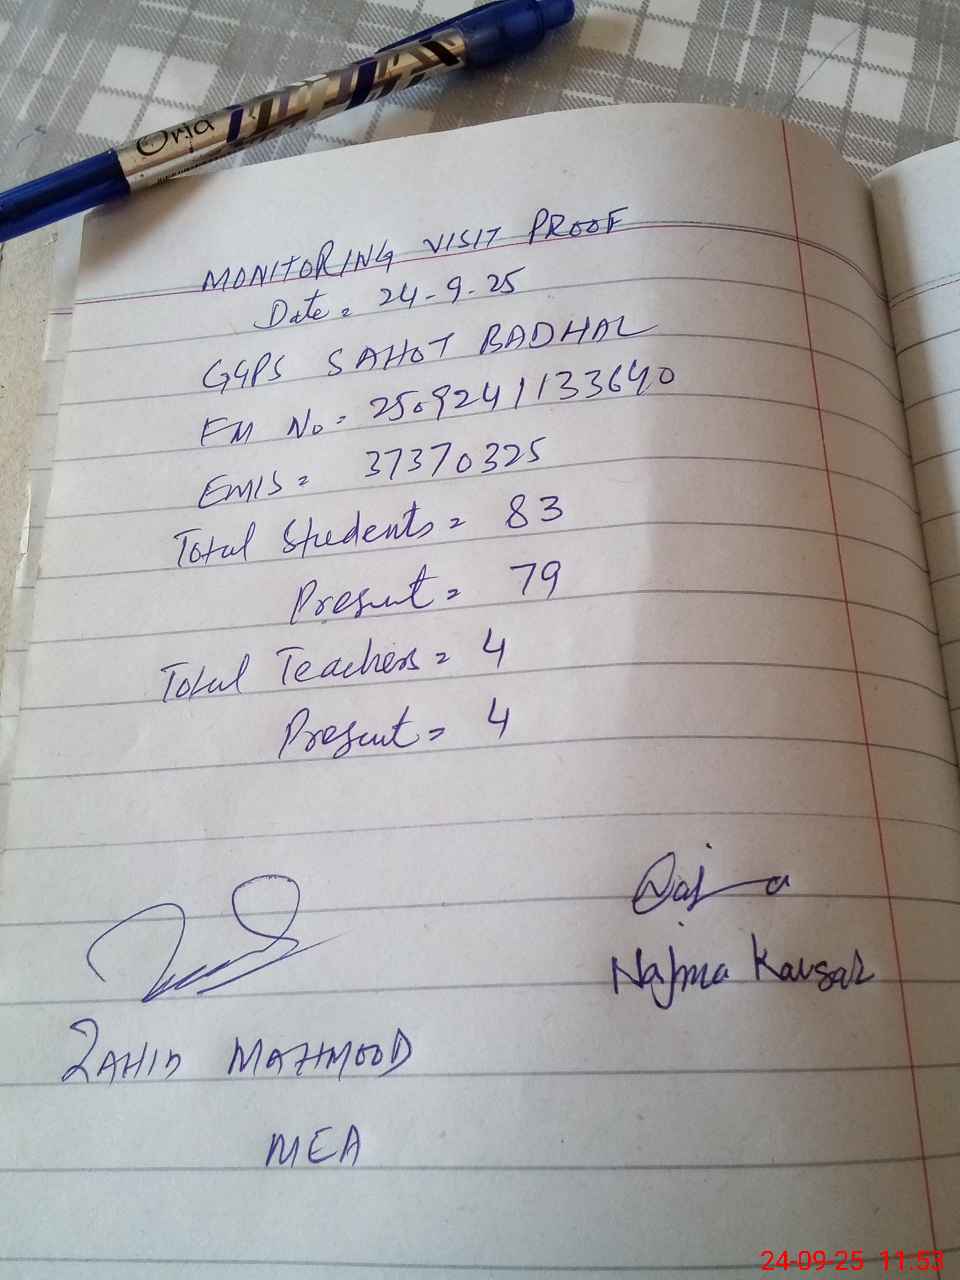 Orja
MONITORING VISIT PROOF
Date = 24-9-25
GGPS SAHOT BADHAL
FM No = 2509241133640
EMIS = 37370325
Total Students = 83
Present = 79
Total Teachers = 4
Present = 4
Najma
Najma Kausar
ZAHID MAHMOOD
MEA
24-09-25 11:53